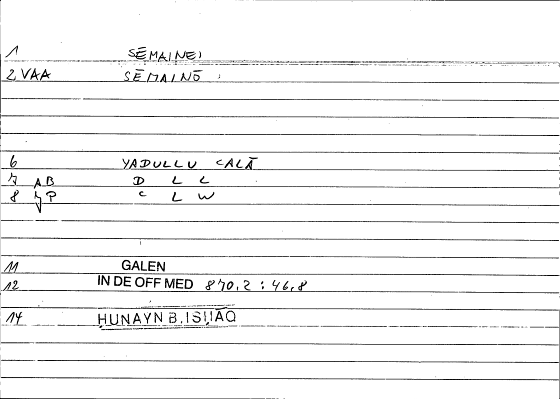 1 SĒMAINEI
2 VAA SĒMAINŌ
6 YADULLU ʿALĀ
7 AB D L L
8 P ʿ L W
11 GALEN
12 IN DE OFF MED 870,2 : 46,8
14 ḤUNAYN B. ISḤĀQ